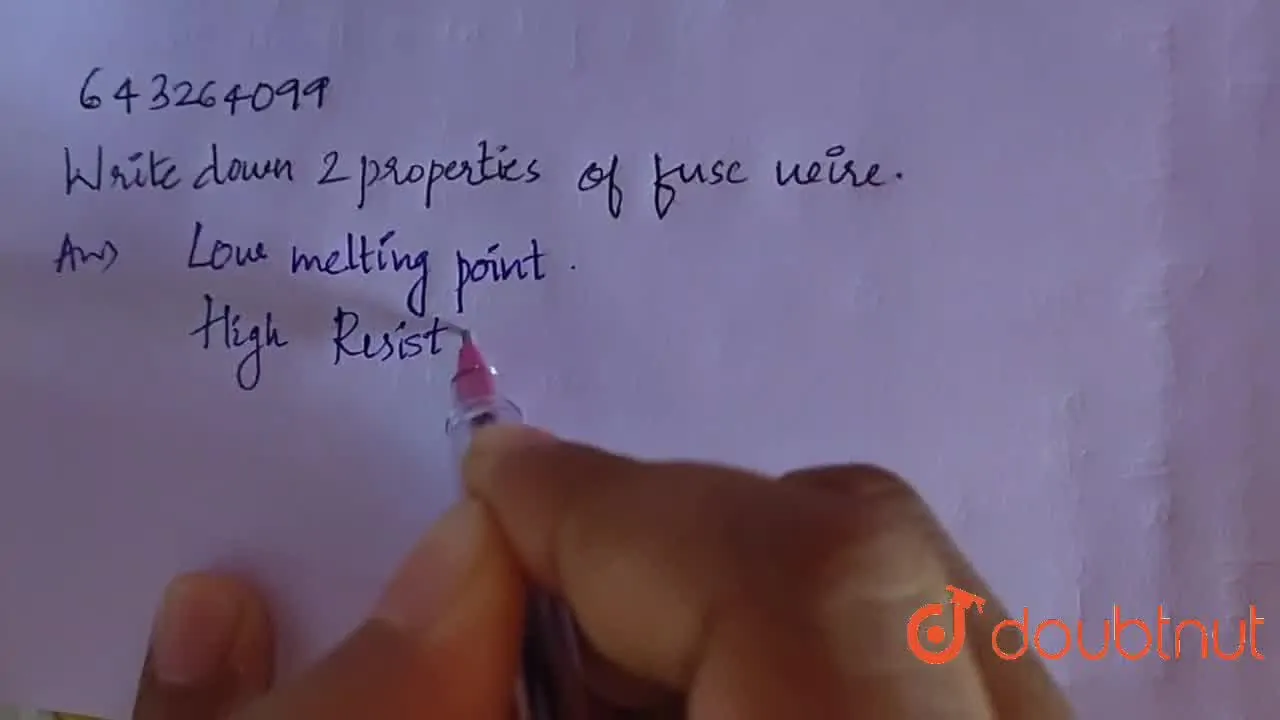 643264099
Write down 2 properties of fuse wire.
Ans Low melting point.
High Resist
doubtnut